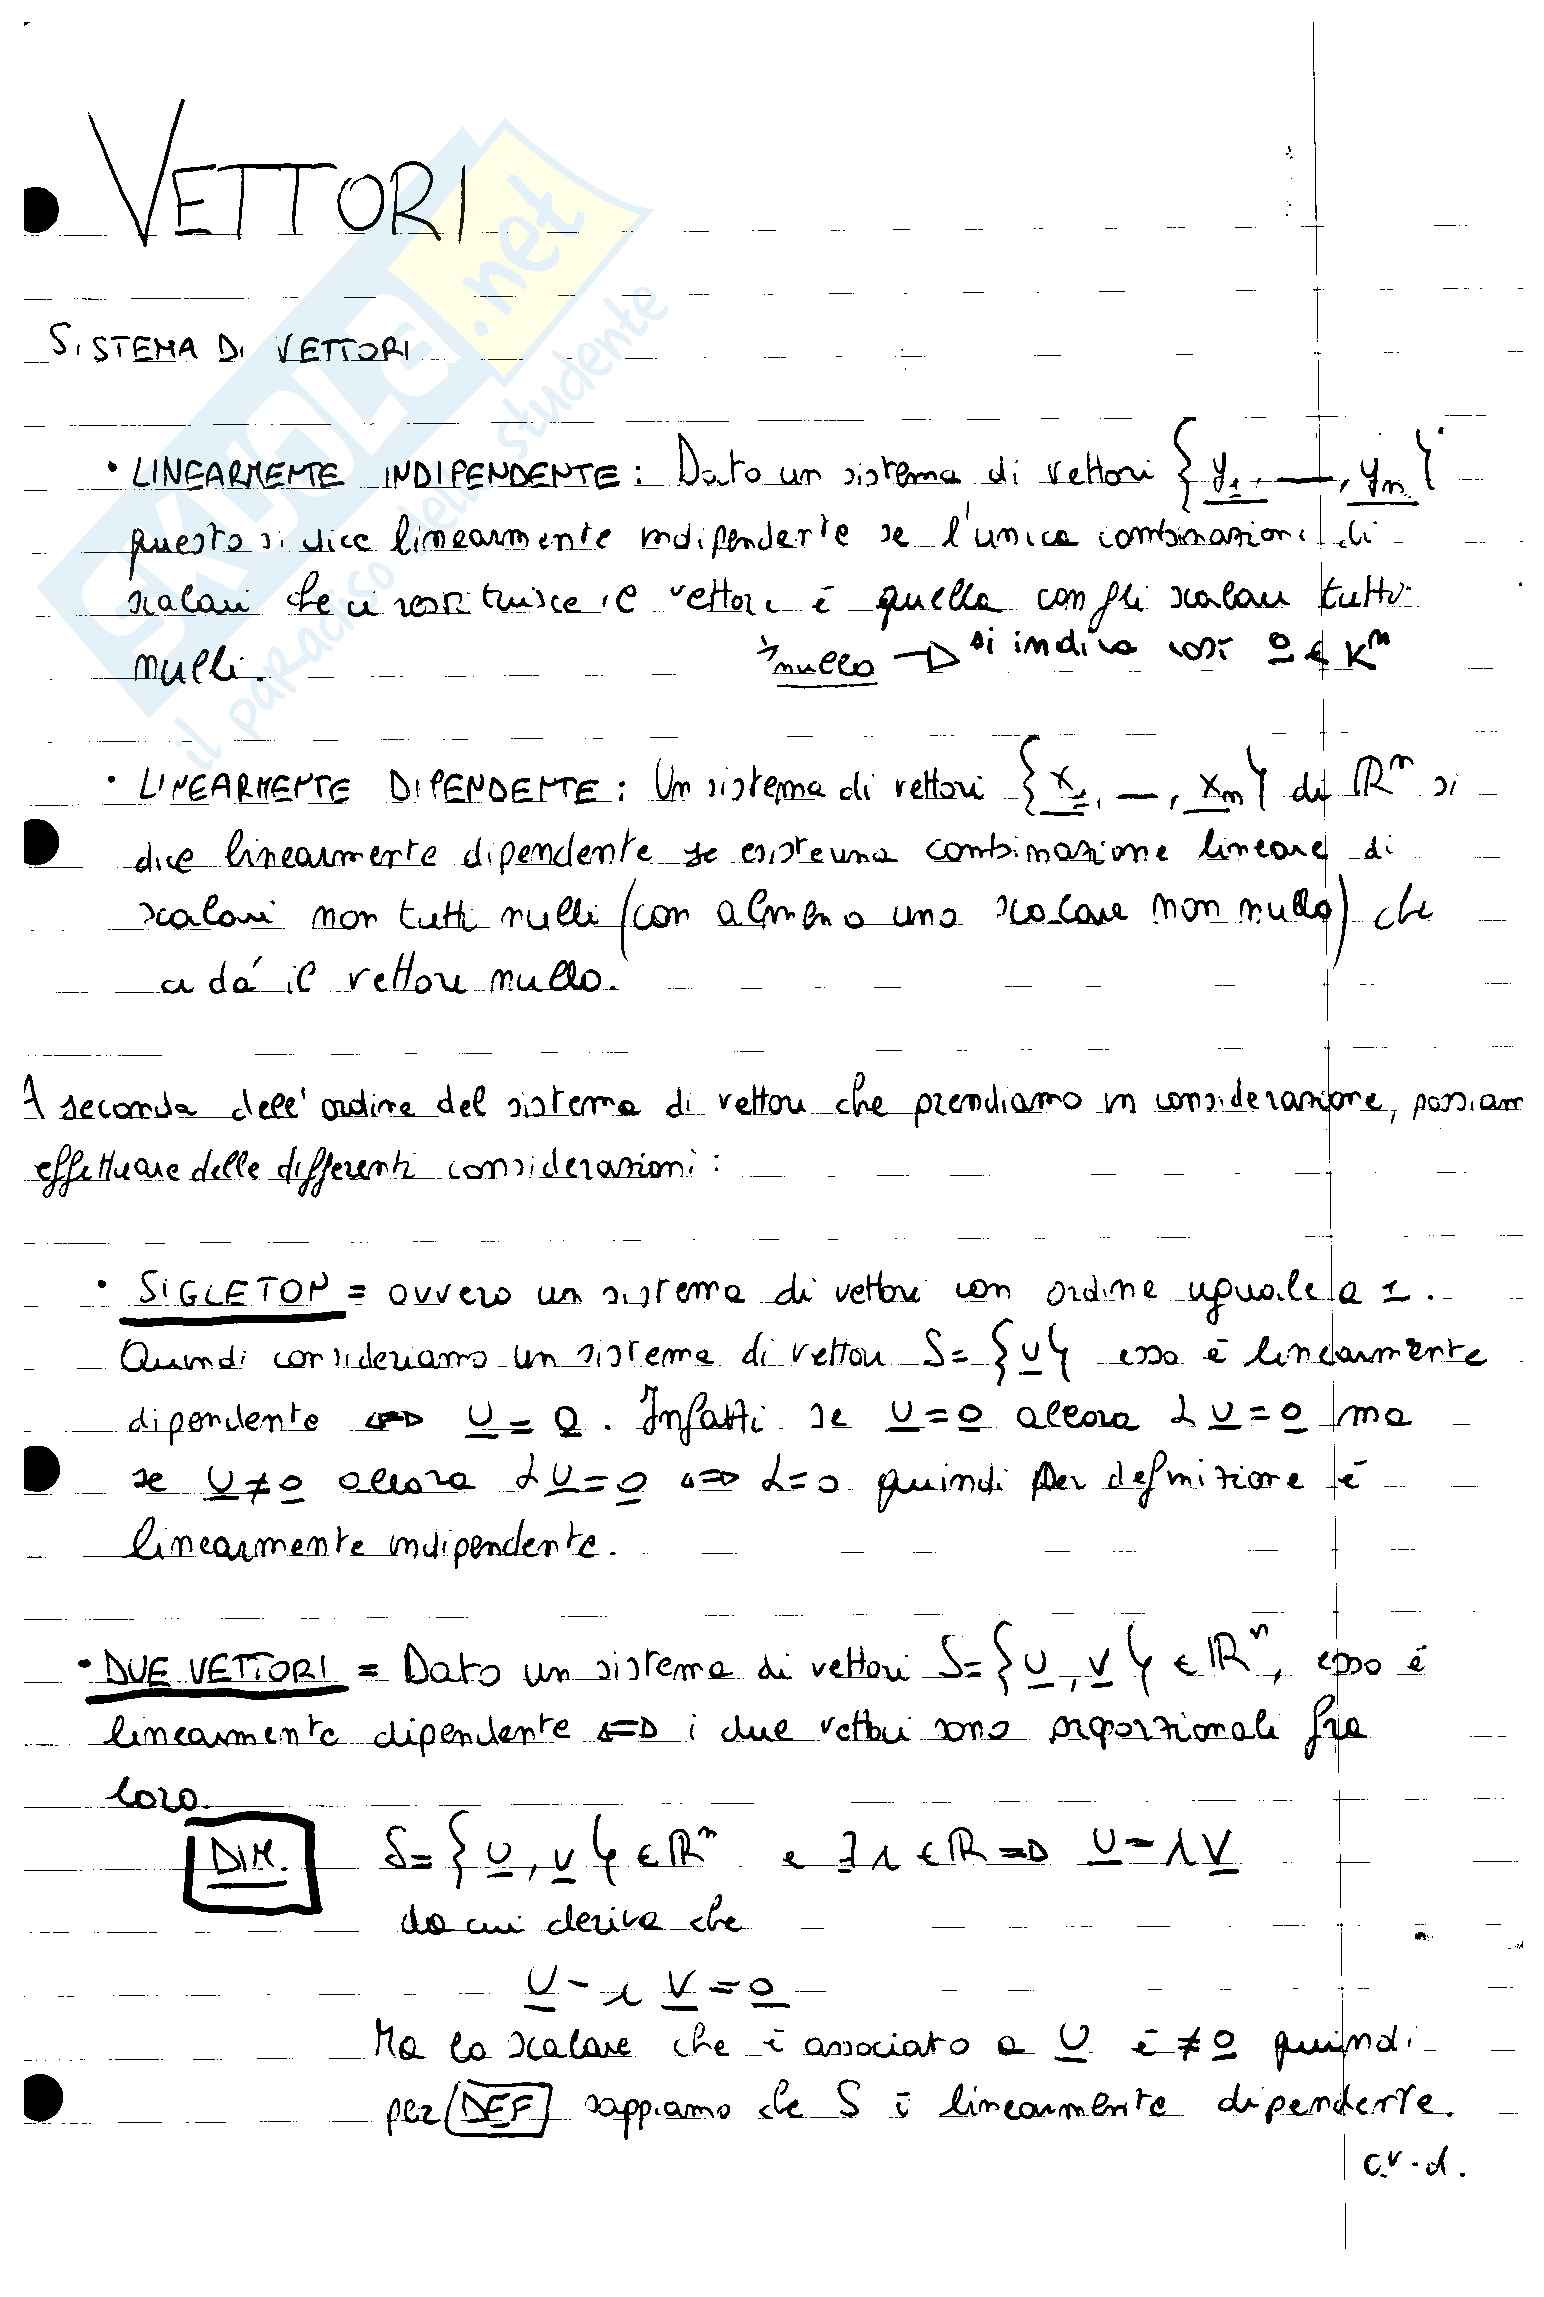 VETTORI
SISTEMA DI VETTORI
• LINEARMENTE INDIPENDENTE: Dato un sistema di vettori {y₁, —, yₙ}
questo si dice linearmente indipendente se l'unica combinazione di
scalari che ci restituisce il vettore è quella con gli scalari tutti
nulli. nullo → si indica così 0 ∈ Kⁿ
• LINEARMENTE DIPENDENTE: Un sistema di vettori {x₁, —, xₙ} di ℝⁿ si
dice linearmente dipendente se esiste una combinazione lineare di
scalari non tutti nulli (con almeno uno scalare non nullo) che
ci dà il vettore nullo.
A seconda dell'ordine del sistema di vettori che prendiamo in considerazione, possiam
effettuare delle differenti considerazioni:
• SIGLETON = ovvero un sistema di vettori con ordine uguale a 1.
Quindi consideriamo un sistema di vettori S={u} esso è linearmente
dipendente ⇔ u = 0. Infatti se u=0 allora αu=0 ma
se u≠0 allora αu=0 ⇔ α=0 quindi per definizione è
linearmente indipendente.
• DUE VETTORI = Dato un sistema di vettori S={u,v} ∈ ℝⁿ, esso è
linearmente dipendente ⇔ i due vettori sono proporzionali fra
loro.
DIM. S={u,v} ∈ ℝⁿ e ∃ λ ∈ ℝ ⇒ u=λv
da cui deriva che
u-λv=0
Ma lo scalare che è associato a u è ≠0 quindi
per DEF sappiamo che S è linearmente dipendente.
c.v.d.
SKUOLA.net
il paradiso dello studente